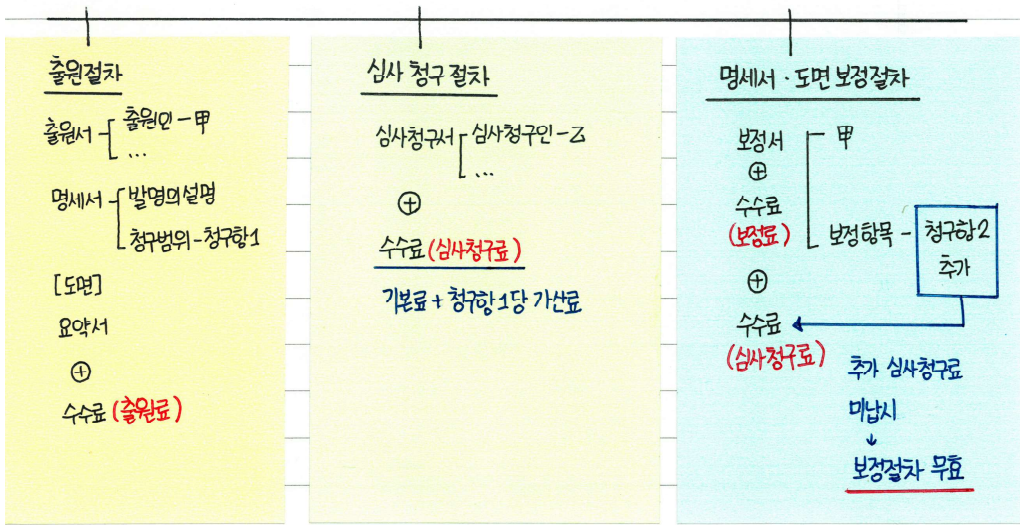 출원절차
출원서 출원인-甲
...
명세서 발명의설명
청구범위-청구항1
[도면]
요약서
⊕
수수료 (출원료)
심사 청구 절차
심사청구서 심사청구인-乙
...
⊕
수수료 (심사청구료)
기본료 + 청구항1당 가산료
명세서·도면 보정절차
보정서 甲
⊕
수수료
(보정료)
보정항목 - 청구항2
추가
⊕
수수료
(심사청구료)
추가 심사청구료
미납시
↓
보정절차 무효